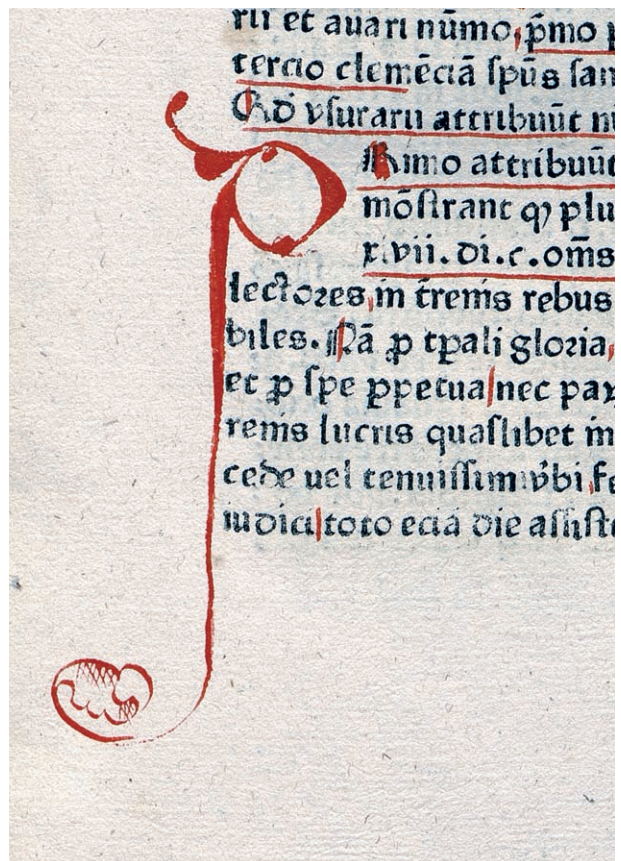 rii et auari nūmo, p̄mo p
tercio clemēciā ſpūs ſan
Qd vſurarii attribuūt ni
P Rimo attribuūt
mōſtrant ꝙ plu
xlvii.di.c.om̄s
lectoꝛes in t̄renis rebus
biles. Nā ꝓ tp̄ali gloꝛia,
et ꝓ ſpe ꝑpetua nec pax
renis lucris quaſlibet in
cede uel tenuiſſim v̄bi fe
iudicii toto eciā die aſſiſte